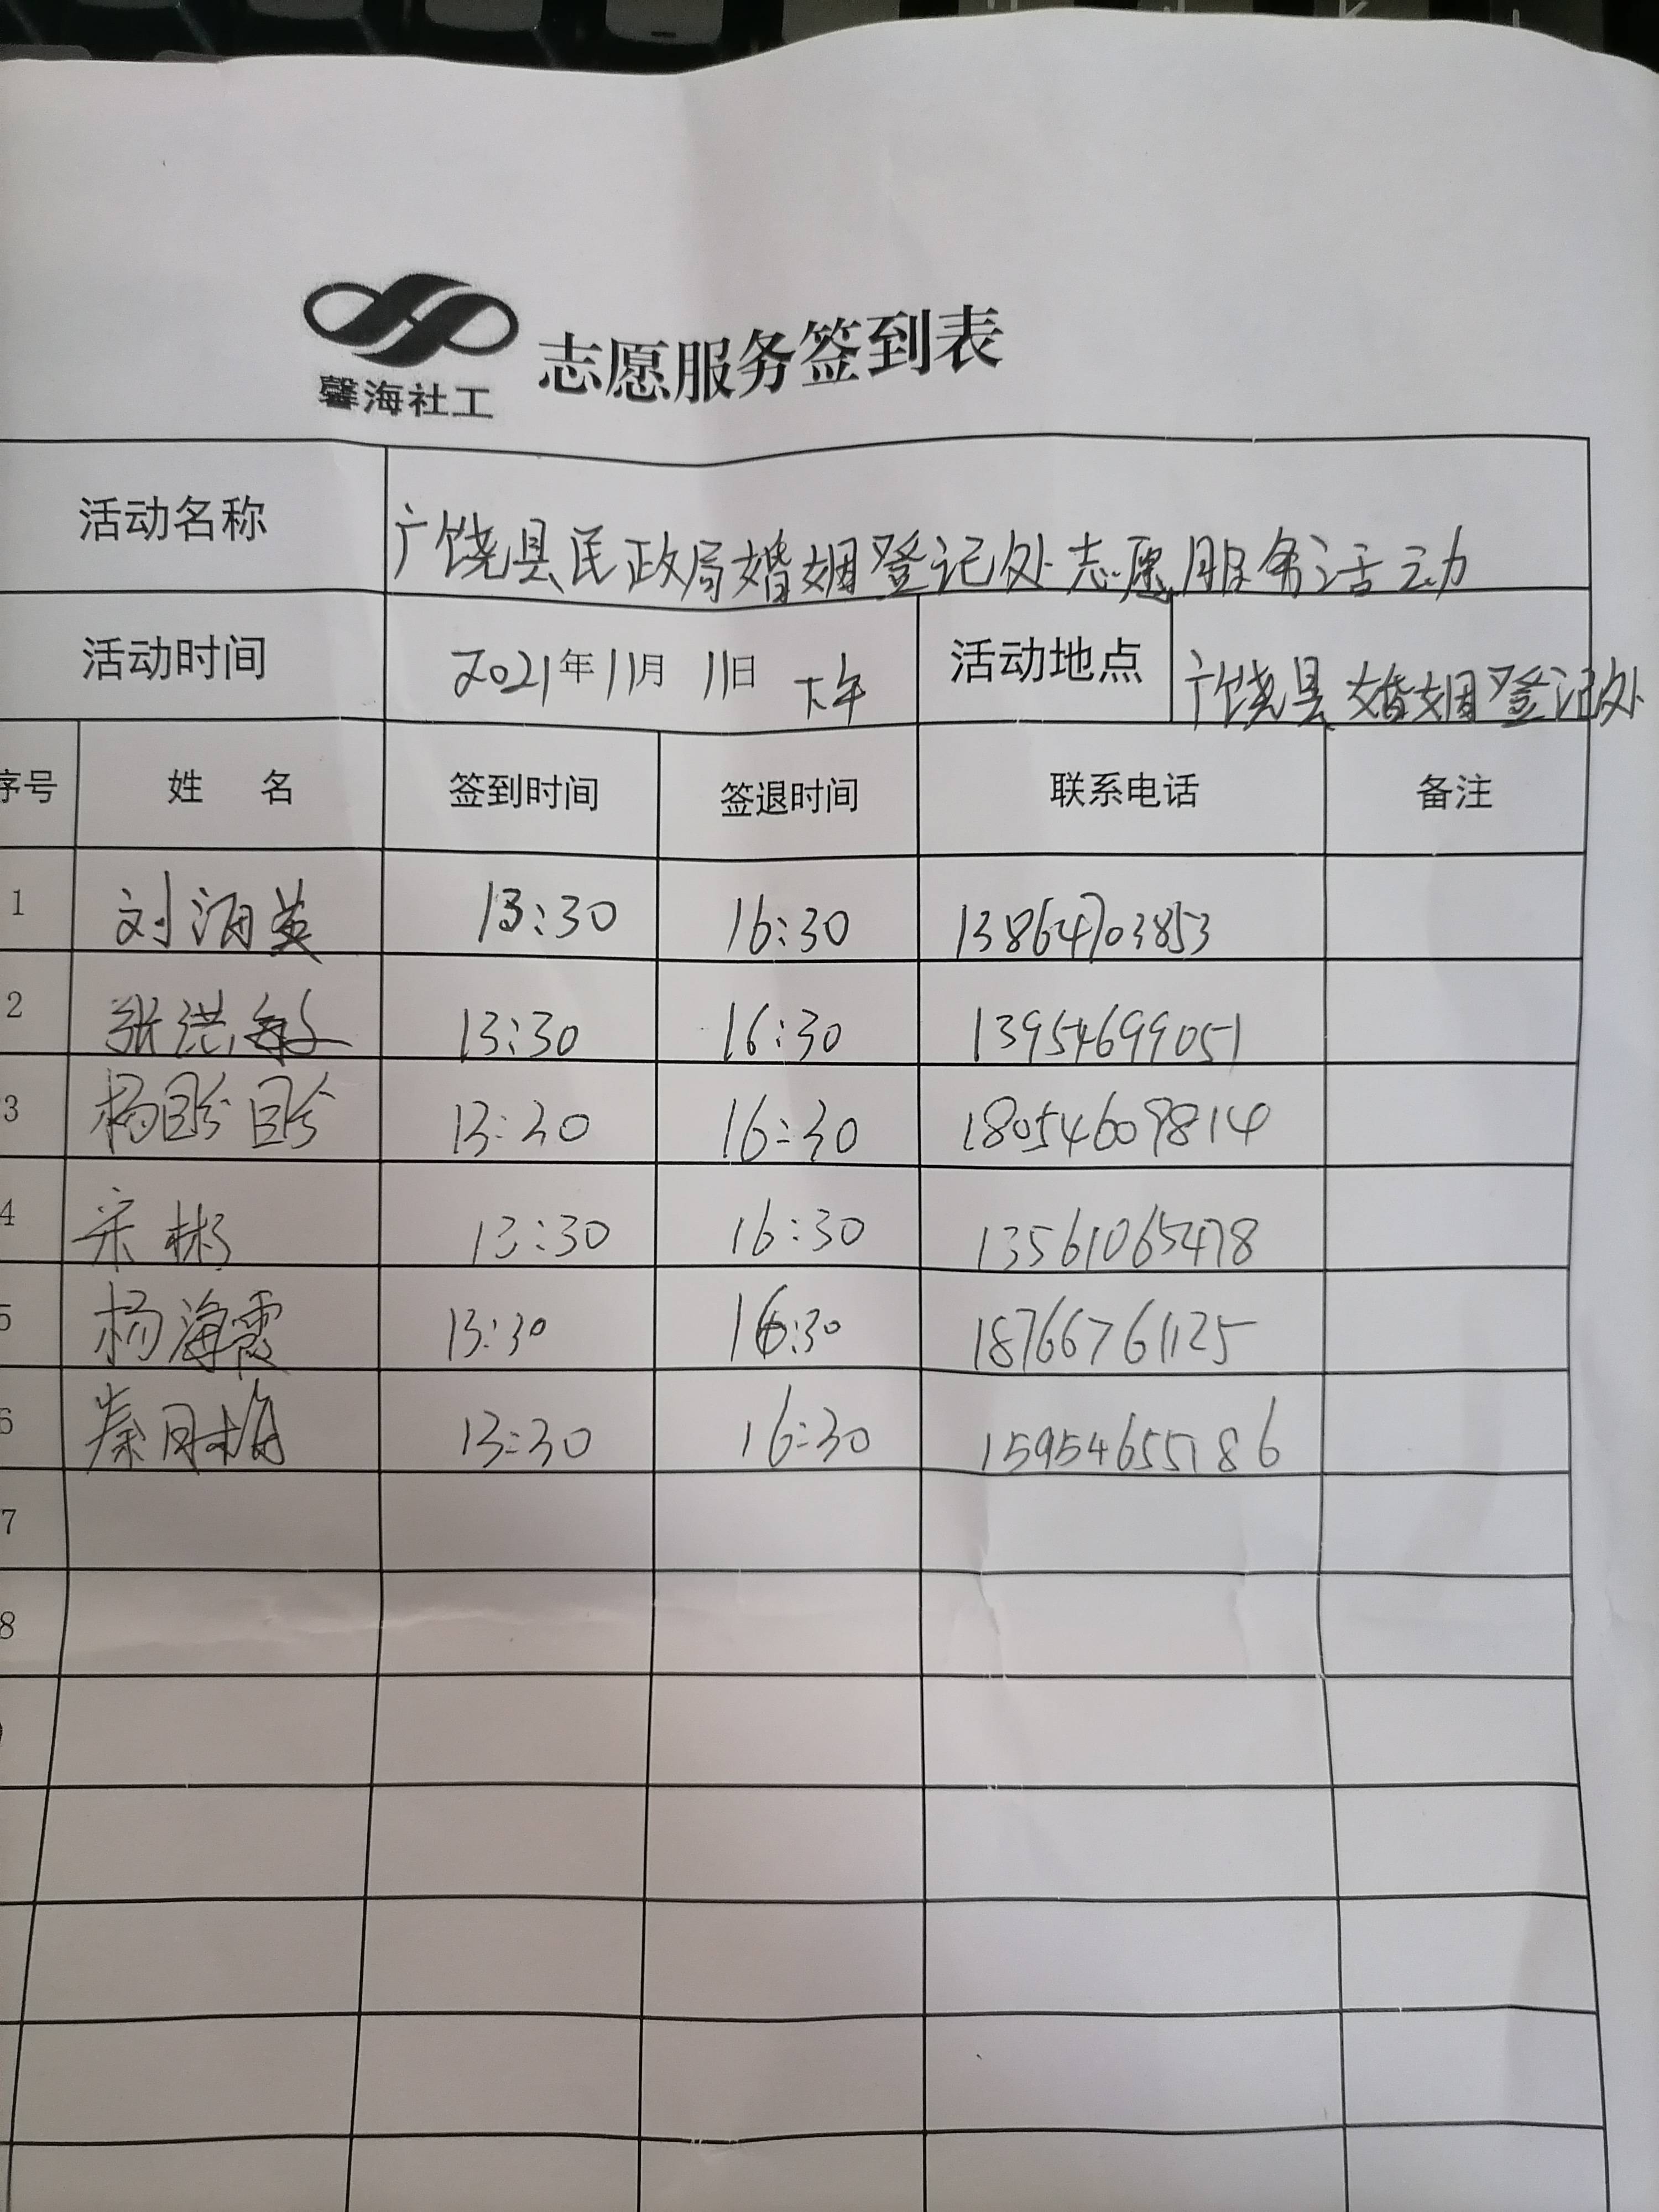 馨海社工
志愿服务签到表
活动名称 广饶县民政局婚姻登记处志愿服务活动
活动时间 2021年11月11日 下午 活动地点 广饶县婚姻登记处
序号 姓 名 签到时间 签退时间 联系电话 备注
1 刘海英 13:30 16:30 13864703853
2 张洪敏 13:30 16:30 13954699051
3 杨盼盼 13:30 16:30 18054609814
4 宋彬 13:30 16:30 13561065478
5 杨海霞 13:30 16:30 18766761125
6 秦月梅 13:30 16:30 15954655186
7
8